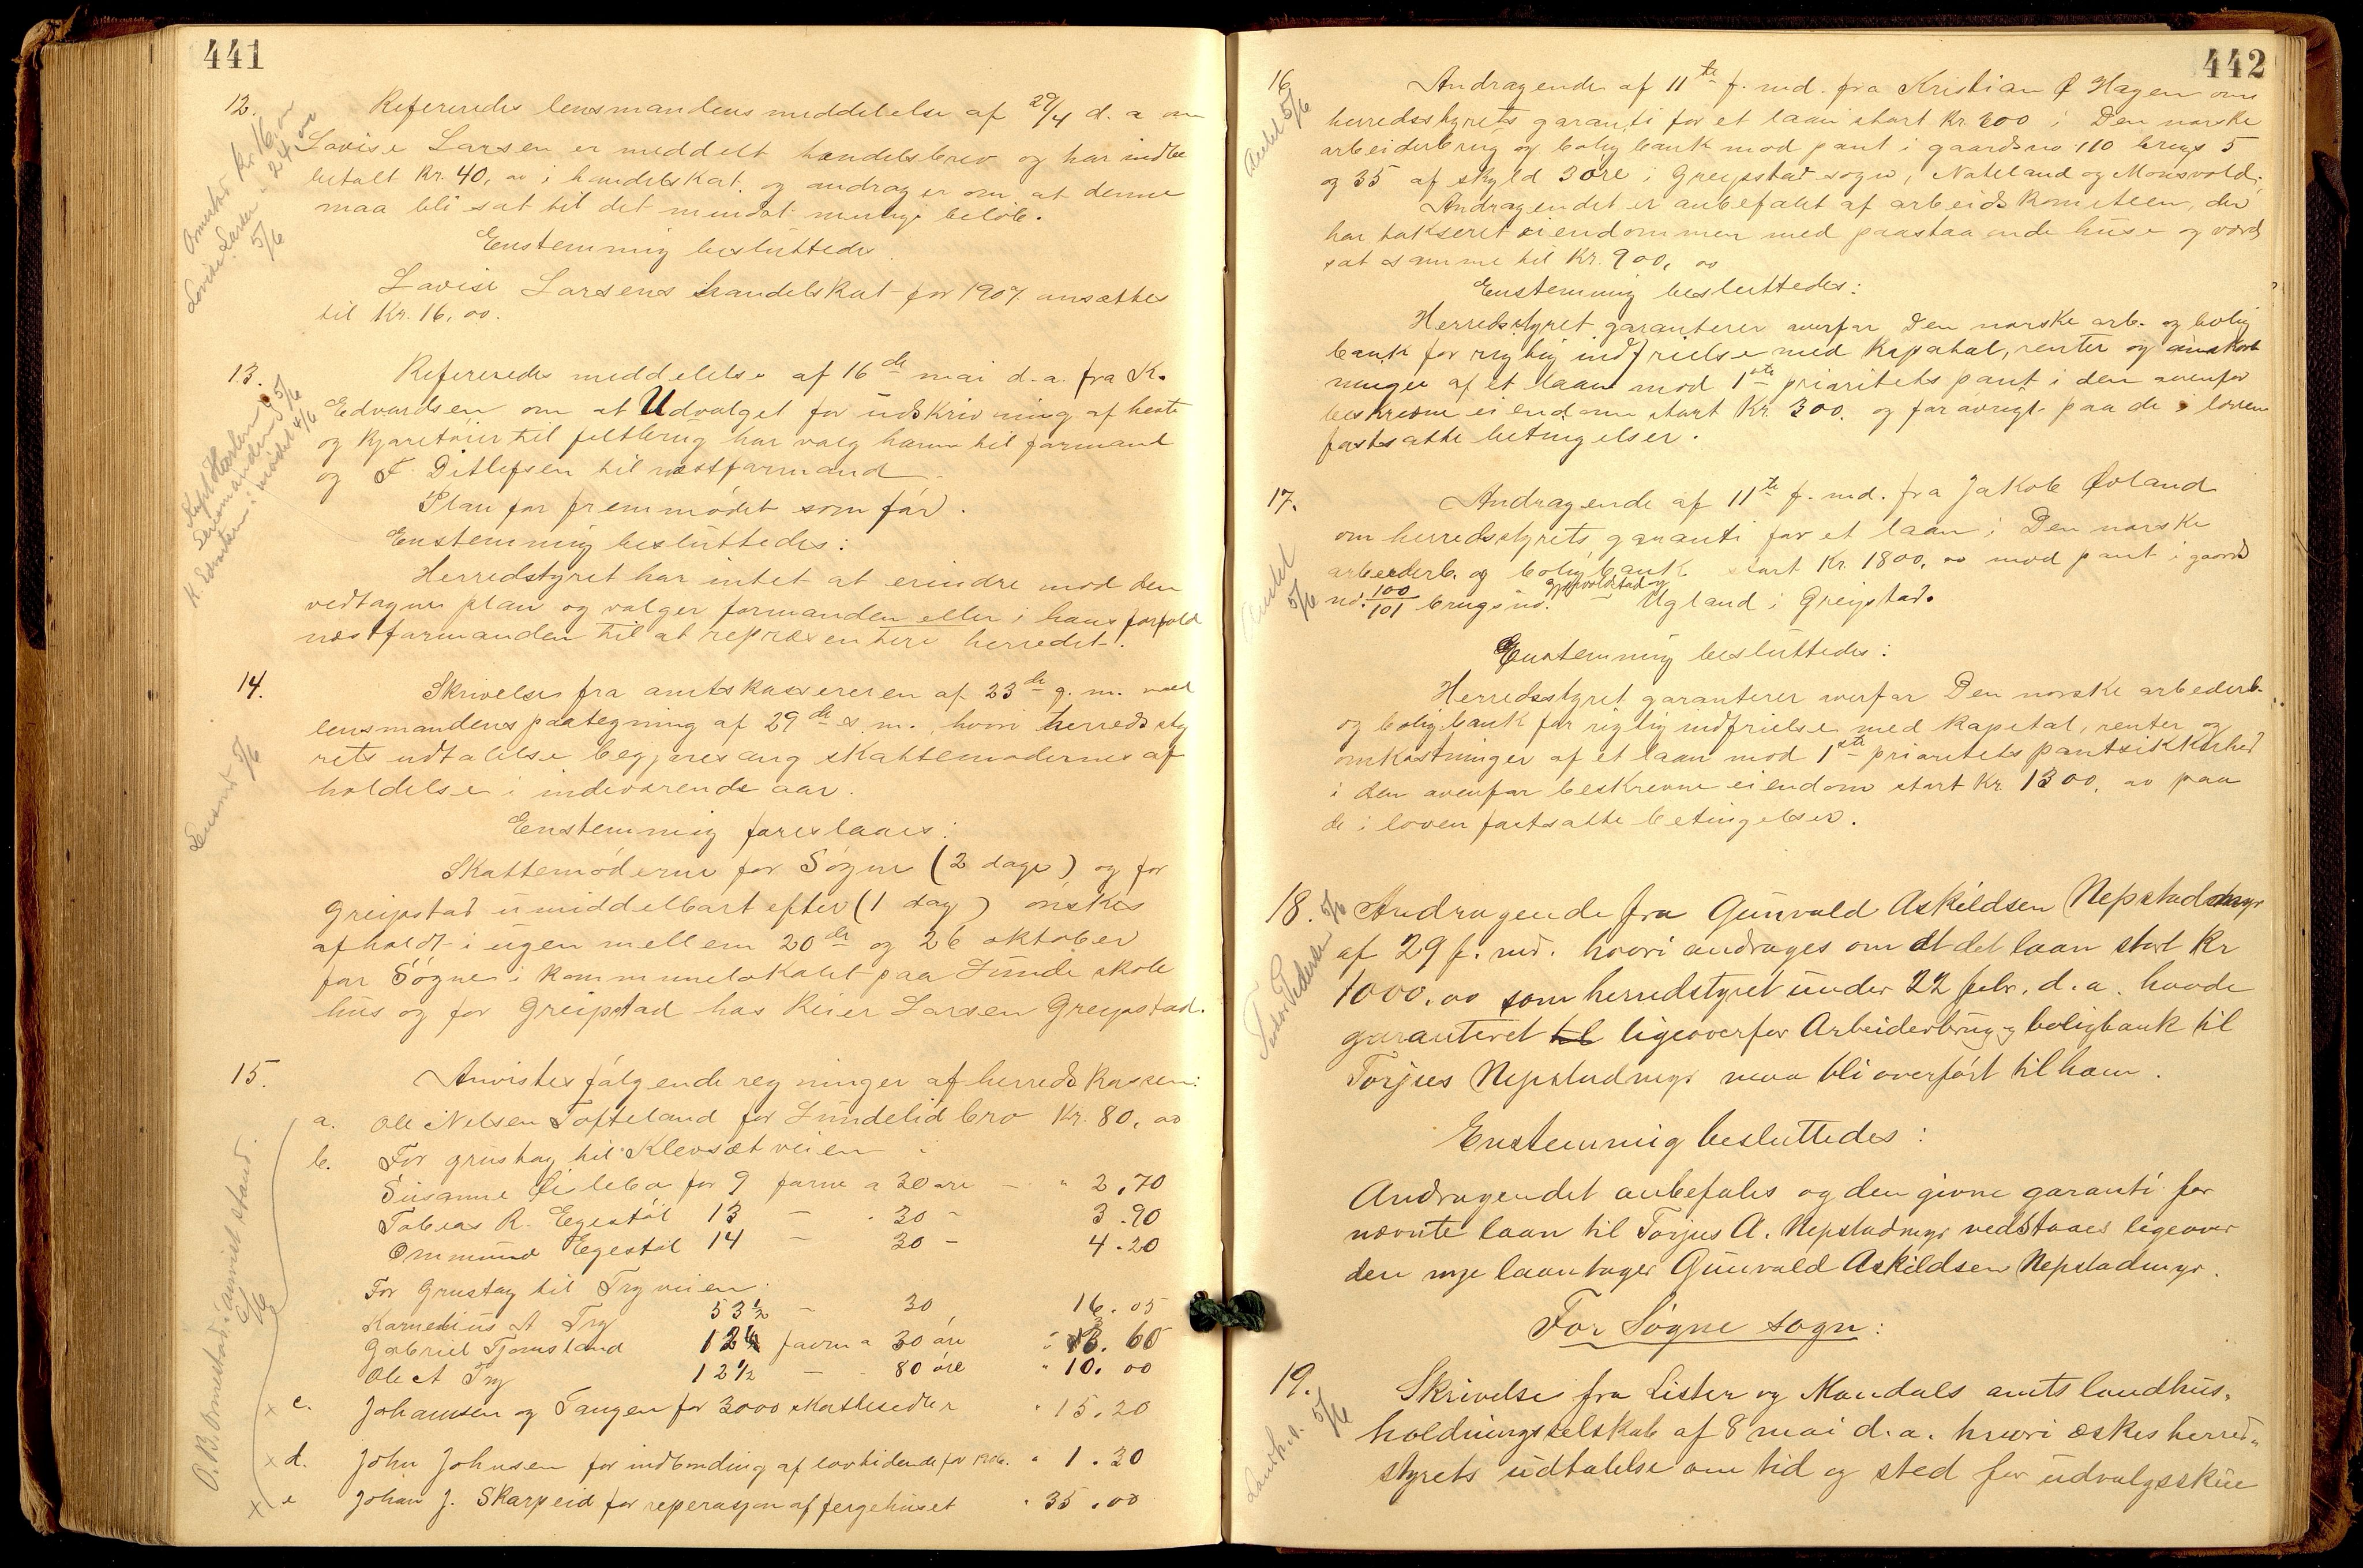 441
12. Refereredes lensmandens meddelelse af 29/4 d. a om
Lovise Larsen er meddelt handelsbrev og har indbe
betalt Kr. 40, oo i handelskat. og andrager om, at denne
maa bli sat til det mindst mulige beløb.
Enstemmig besluttedes
Lovise Larsens handelskat for 1907 ansættes
til Kr. 16, oo.
Ormestad Kr 16, oo
Lovise Larsen " 24, oo
5/6
13. Refereredes meddelelse af 16de mai d. a. fra K.
Edvardsen om at Udvalget for udskrivning af heste
og kjøretøier til feltbrug har valg ham til formand
og F. Ditlefsen til næstformand.
Plan for fremmødet som før.
Enstemmig besluttedes:
Herredstyret har intet at erindre mod den
vedtagne plan og vælger formanden eller i hans forfald
næstformanden til at repræsentere herredet.
Lensmanden 5/6
K. Edvardsen i mødet 4/6
14. Skrivelse fra amtskassereren af 23de g. m. med
lensmandens paategning af 29de s. m., hvori herredssty
rets udtalelse begjæres ang skattemødernes af
holdelse i indeværende aar.
Enstemmig foreslaaes:
Skattemøderne for Søgne (2 dage) og for
Greipstad umiddelbart efter (1 dag) ønskes
afholdt i ugen mellem 20de og 26 oktober
for Søgne i kommunelokalet paa Lunde skole
hus og for Greipstad hos Reier Larsen Greipstad.
Lensmd 5/6
15. Anvistes følgende regninger af herredskassen:
a. Ole Nilsen Tofteland for Lundelid bro Kr. 80, oo
b. For grustag til Klevsæt veien
Susanne Lilebø for 9 favne a 30 øre - " 2,70
Tobias R. Egestøl 13 - - 30 - 3.90
Ommund Egestøl 14 - 30 - 4.20
For Grustag til Try veien.
Kornelius A Try 53½ - 30 16.05
Gabriel Tjomsland 12 favn a 30 øre " 3.60
Ole A Try 12½ - - 80 øre " 10.00
x c. Johansen og Tangen for 3000 skattesedler " 15.20
x d. John Johnsen for indbinding af lovtidende for 1906. " 1.30
x e Johan J. Skarpeid for reperasjon af fergehuset " 35.00
O. B. Ormestad anvist staad.
6/6
442
16. Andragende af 11te f. md. fra Kristian Ø Hagen om
herredsstyrets garanti for et laan stort Kr. 300 i Den norske
arbeiderbrug og boligbank mod pant i gaardsno 110 brugs 5
og 35 af skyld 3 øre i Greipstad sogn, Nateland og Monsvold.
Andragendet er anbefalet af arbeidskomiteen, der
har takseret eiendommen med paastaaende huse og værd
sat samme til Kr. 900, oo
Enstemmig besluttedes:
Herredsstyret garanterer overfor Den norske arb. og bolig
bank for rigtig indfrielse med kapital, renter og omkost
ninger af et laan mod 1ste prioritets pant i den ovenfor
beskrevne eiendom stort Kr 300. og forøvrigt paa de i loven
fastsatte betingelser.
Andst 5/6
17. Andragende af 11te f. md. fra Jakob Øvland
om herredsstyrets garanti for et laan i Den norske
arbeiderb. og boligbank stort Kr. 1800, oo mod pant i gaard
no. 100/101 brugsno. Ugland i Greipstad.
Enstemmig besluttedes:
Herredsstyret garanterer overfor Den norske arbederb.
og boligbank for rigtig indfrielse med kapital, renter og
omkostninger af et laan mod 1ste prioritets pantsikkerhed
i den ovenfor beskrevne eiendom stort Kr 1800, oo paa
de i loven fastsatte betingelser.
Andst 5/6
18. Andragende fra Gunvald Askildsen Nepstadmyr
af 29 f. md. hvori andrages om at det laan stort Kr
1000, oo som herredstyret under 22 febr. d. a. havde
garanteret til ligeoverfor Arbeiderbrug og boligbank til
Torjus Nepstadmyr maa bli overført til ham.
Enstemmig besluttedes:
Andragendet anbefales og den givne garanti for
nævnte laan til Torjus A. Nepstadmyr vedstaaes ligeover
den nye laantager Gunvald Askildsen Nepstadmyr.
Pedersen 5/6
For Søgne sogn:
19. Skrivelse fra Lister og Mandals amts landhus-
holdningsselskab af 8 mai d. a. hvori æskes herred-
styrets udtalelse om tid og sted for udvalgsskue
Landh.s. 5/6